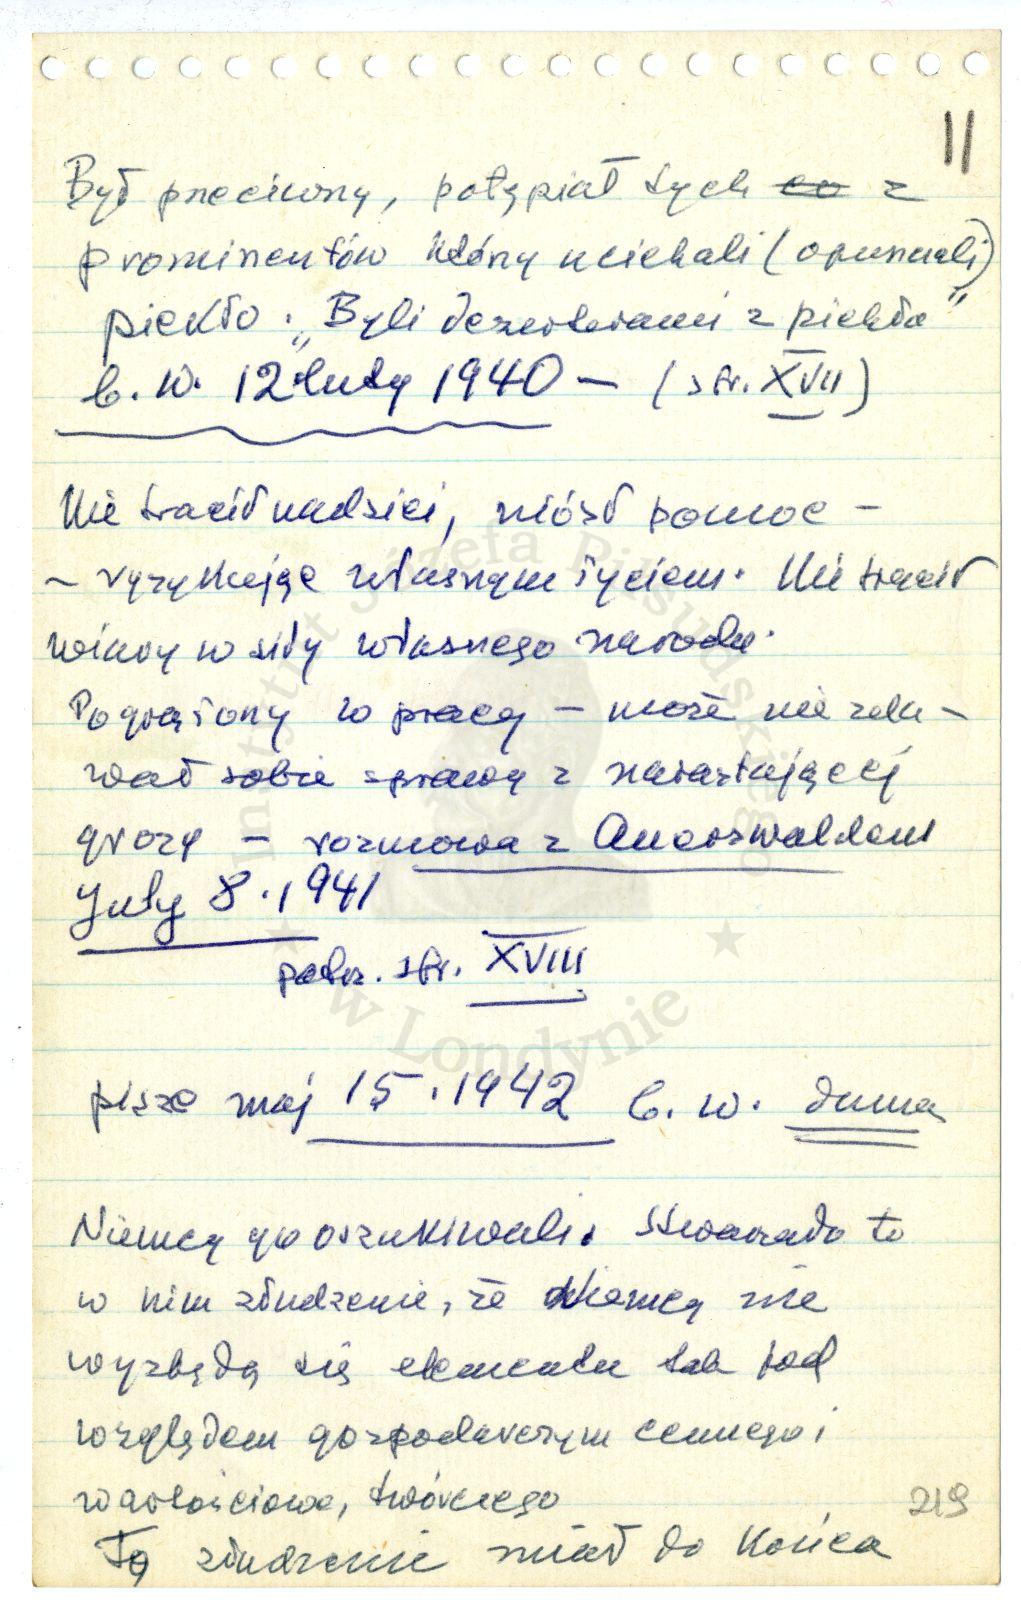 11
Był przeciwny, potępiał tych co z
prominentów którzy uciekali (opuszczali)
piekło. „Byli dezerterami z piekła"
b. w. 12 luty 1940 – (str. XVII)
Nie tracił nadziei, niósł pomoc –
– ryzykując własnym życiem. Nie tracił
wiary w siły własnego narodu.
Pogrążony w pracy – może nie zda-
wał sobie sprawy z narastającej
grozy – rozmowa z Auerswaldem
July 8. 1941
patrz. str. XVIII
pisze maj 15. 1942 b. w. duma
Niemcy go oszukiwali. Stwarzało to
w nim złudzenie, że Niemcy nie
wyzbędą się elementu tak pod
względem gospodarczym cennego i
wartościowe, twórczego
Tę złudzenie miał do końca
219
Instytut Józefa Piłsudskiego
★ w Londynie ★